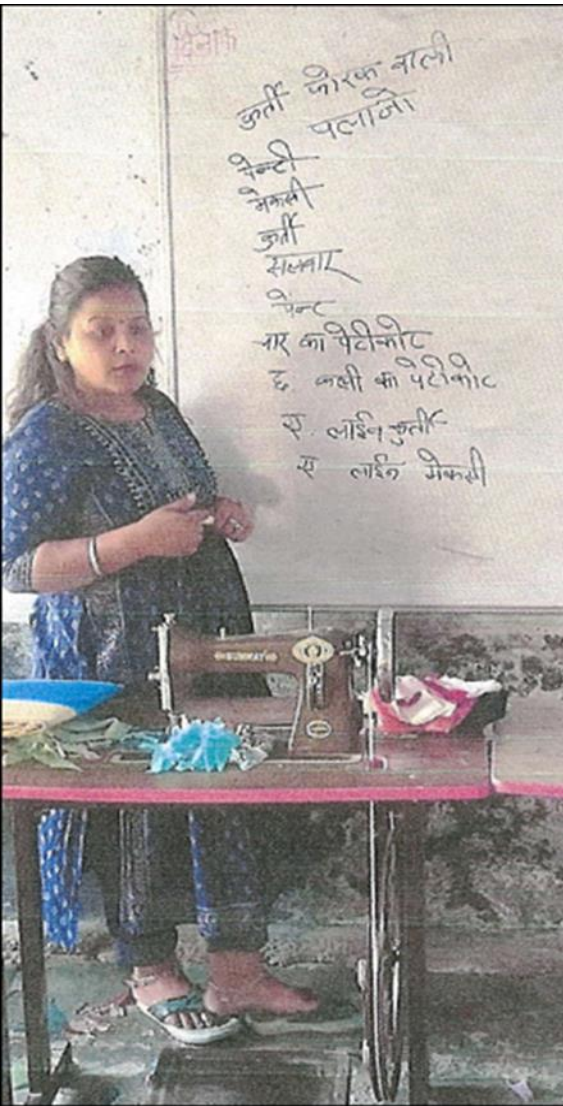 दिनांक
कुर्ती फोरक वाली
पलाजो
पेन्टी
मेकसी
कुर्ती
सलवार
पेन्ट
चार का पेटीकोट
छ कली का पेटीकोट
ए. लाईन कुर्ती
ए लाईन मेकसी